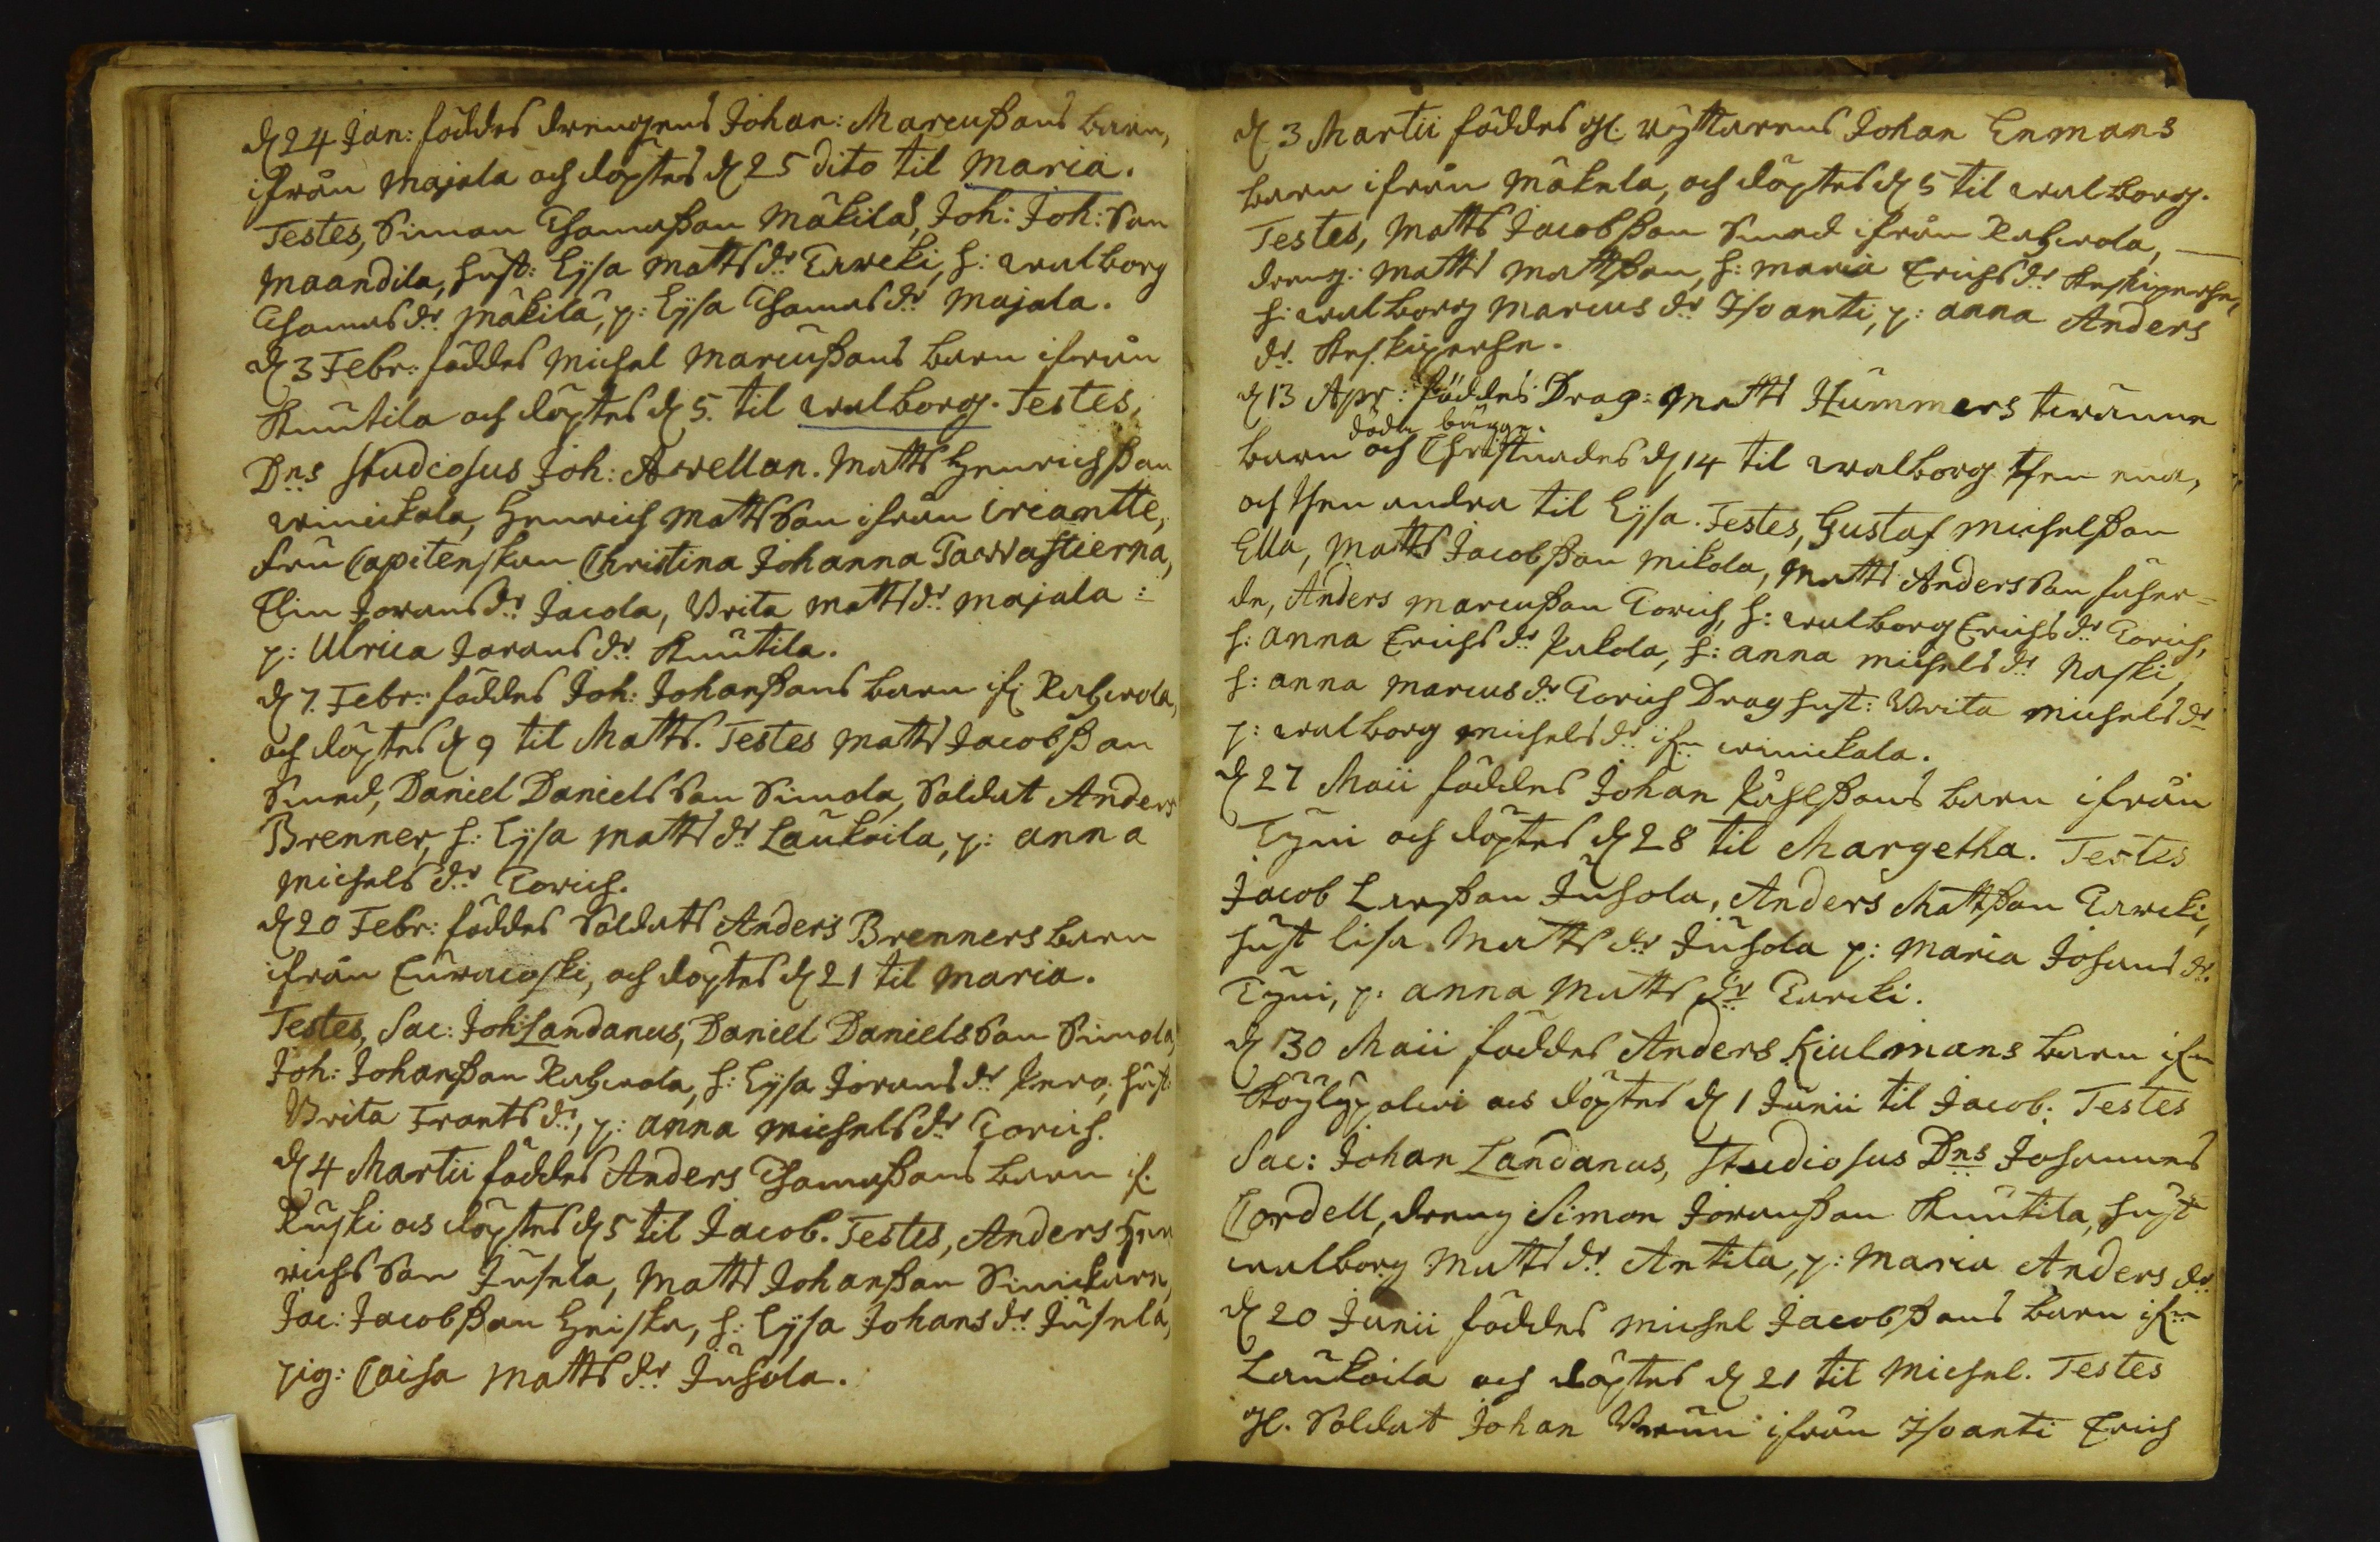 d 24 Jan: föddes drengens Johan: Marcußons barn,
ifrån Majala och döptes d 25 dito til Maria.
Testes, Simon Thomaßon Mäkilä, Joh: Joh: Son
Maandila, hust: Lijsa Matts dr Erwcki, h: walborg
Thomas dr Mäkilä, p: Lijsa Thomas dr Majala.
d 3 Febr: föddes Michel Marcußons barn ifrån
Knutila och döptes d 5. til walborg. Testes,
Dns Studiosus Joh: Avellan. Matts Henrichßon
winickala, Henrich Mattsson ifrån
fru Capitenskan Christina Johanna Tawastierna,
Elin Jorans dr Jacola, Brita Matts dr Majala:
p: Ulrica Jorans dr Knutila.
d 7. Febr: föddes Joh: Johanßons barn if:
och döptes d 9 til Matts. Testes Matts Jacobßon
Smed, Daniel Danielsson Simola, Soldat Anders
Brenner, h: Lijsa Matts dr Laukoila, p: anna
Michels dr Torich.
d 20 Febr: föddes Soldats Anders Brenners barn
ifrån och döptes d 21 til Maria.
Testes, Sac: Joh: Landanus, Daniel Danielsson Simola,
Joh: Johanßon h: Lijsa Jorans dr hust:
Brita Frants dr, p: anna Michels dr Torich.
d 4 Martii föddes Anders Thomaßons barn if:
Ruski och döptes d 5 til Jacob. Testes, Anders Hen
richsson Jusela, Matts Johanßon
Jac: Jacobßon Heiska, h: Lijsa Johans dr Jusela,
pig: Caisa Matts dr Jusola.
d 3 Martii föddes gl. ryttarens Johan Enmans
barn ifrån Mäkela, och döptes d 5 til walborg.
Testes, Matts Jacobßon Smed ifrån
dreng: Matts Mattßon, h: Maria Erichs dr
h: walborg Marcus dr Isoanti, p: anna Anders
dr
d 13 Apr: föddes Drag: Matts Hummers twänne
döda bägge.
barn och Christnades d 14 til walborg then ena,
och then andra til Lijsa. Testes, Gustaf Michelßon
Ella, Matts Jacobßon Mikola, Matts Andersson
Anders Marcußon Torich, h: walborg Erichs dr Torich,
h: anna Erichs dr h: anna Michels dr
h: anna Marcus dr Torich Drag hust: Brita Michels dr
p: walborg Michels dr ifrn winickala.
d 27 Maii föddes Johan Påhlßons barn ifrån
Tyni och döptes d 28 til Margetha. Testes
Jacob Larßon Jusola, Anders Mattßon Erwcki,
hust Lisa Matts dr Jusola p: Maria Johans dr.
Tyni, p: anna Matts dr Erwcki.
d 30 Maii föddes Anders Kiulmans barn ifrn
Köylypolwi och döptes d 1 Junii til Jacob. Testes
Sac: Johan Landanus, Studiosus Dns Johannes
Cordell, dreng Simon Joranßon Knutila, hust
walborg Matts dr Antila, p: Maria Anders dr
d 20 Junii föddes Michel Jacobßons barn ifrn
Laukoila och döptes d 21 til Michel. Testes
gl. Soldat Johan ifrån Isoanti Erich